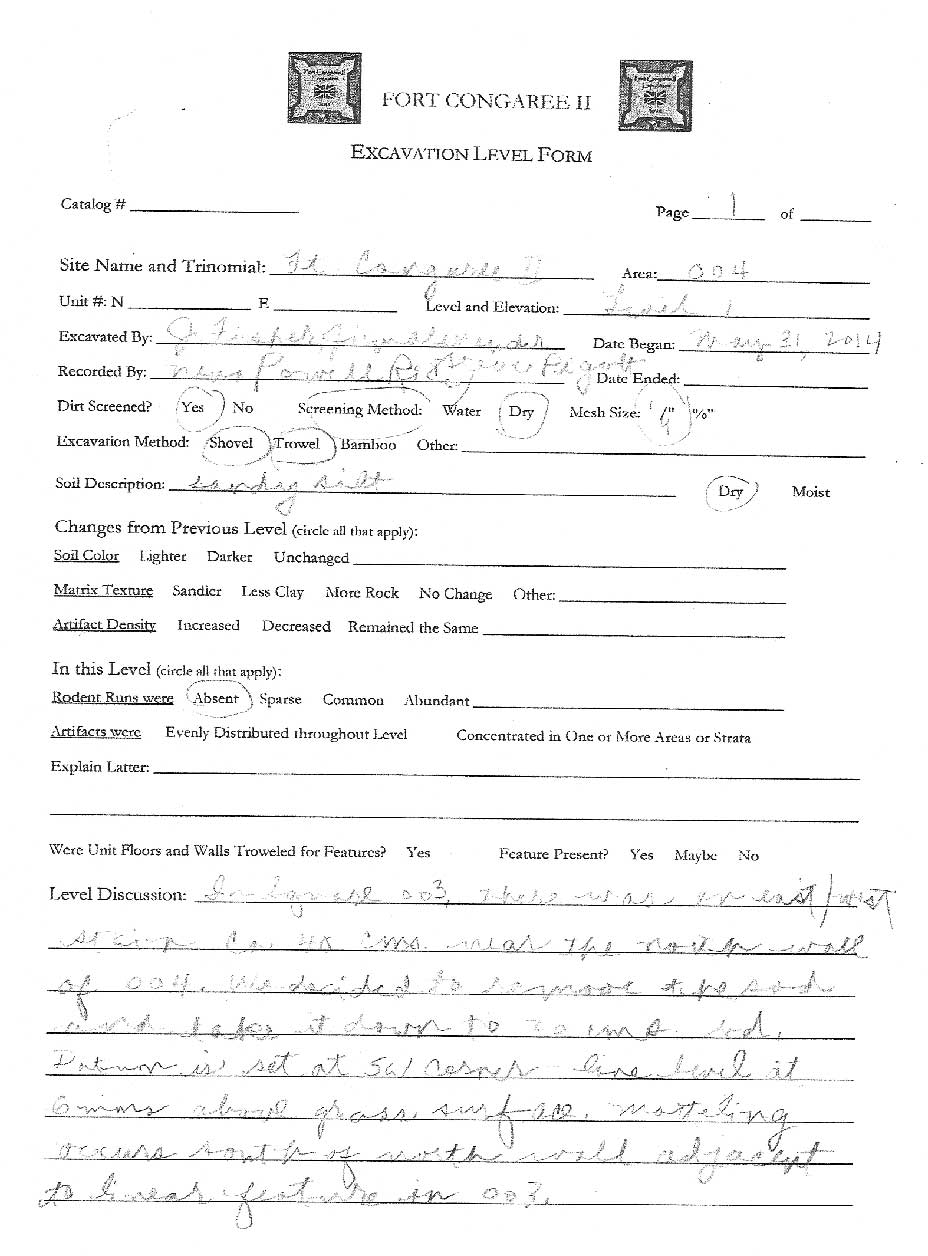 FORT CONGAREE II
EXCAVATION LEVEL FORM
Catalog #
Page 1 of
Site Name and Trinomial: Ft. Congaree II Area: 004
Unit #: N E Level and Elevation: Level 1
Excavated By: J. Date Began: May 31, 2014
Recorded By: Powell Date Ended:
Dirt Screened? Yes No Screening Method: Water Dry Mesh Size: 1/4" ⅛"
Excavation Method: Shovel Trowel Bamboo Other:
Soil Description: sandy silt Dry Moist
Changes from Previous Level (circle all that apply):
Soil Color Lighter Darker Unchanged
Matrix Texture Sandier Less Clay More Rock No Change Other:
Artifact Density Increased Decreased Remained the Same
In this Level (circle all that apply):
Rodent Runs were Absent Sparse Common Abundant
Artifacts were Evenly Distributed throughout Level Concentrated in One or More Areas or Strata
Explain Latter:
Were Unit Floors and Walls Troweled for Features? Yes Feature Present? Yes Maybe No
Level Discussion: In Square 003, there was an east/west
ca. 40 cms. near the north wall
of 004. We decided to remove the sod
and take it down to cms. bd.
Datum is set at SW corner - line level at
6 above grass surface. Motteling
occurs south of north wall adjacent
to linear feature in 003.